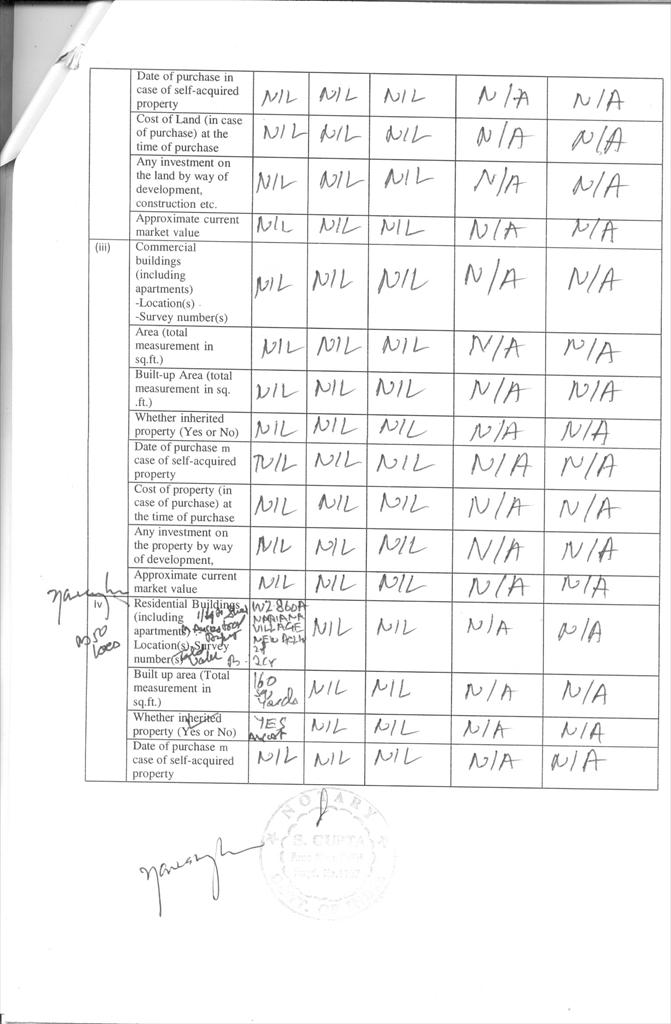 Date of purchase in
case of self-acquired
property
NIL NIL NIL N/A N/A
Cost of Land (in case
of purchase) at the
time of purchase
NIL NIL NIL N/A N/A
Any investment on
the land by way of
development,
construction etc.
NIL NIL NIL N/A N/A
Approximate current
market value
NIL NIL NIL N/A N/A
(iii) Commercial
buildings
(including
apartments)
-Location(s)
-Survey number(s)
NIL NIL NIL N/A N/A
Area (total
measurement in
sq.ft.)
NIL NIL NIL N/A N/A
Built-up Area (total
measurement in sq.
.ft.)
NIL NIL NIL N/A N/A
Whether inherited
property (Yes or No)
NIL NIL NIL N/A N/A
Date of purchase m
case of self-acquired
property
NIL NIL NIL N/A N/A
Cost of property (in
case of purchase) at
the time of purchase
NIL NIL NIL N/A N/A
Any investment on
the property by way
of development,
NIL NIL NIL N/A N/A
Approximate current
market value
NIL NIL NIL N/A N/A
iv) Residential Buildings
(including
apartments)
Location(s) Survey
number(s)
WZ 860A
NARIANA
VILLAGE
NEW DELHI
NIL NIL N/A N/A
Built up area (Total
measurement in
sq.ft.)
160
Yards
NIL NIL N/A N/A
Whether inherited
property (Yes or No)
YES
NIL NIL N/A N/A
Date of purchase m
case of self-acquired
property
NIL NIL NIL N/A N/A
NOTARY
S. GUPTA